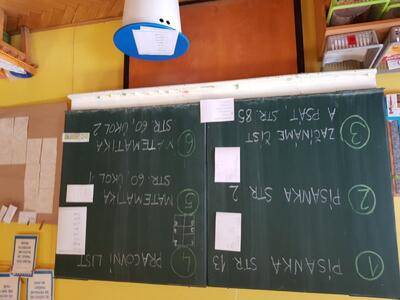 1 PÍSANKA STR 43
2 PÍSANKA STR 2
3 ZAČÍNÁME ČÍST
A PSÁT, STR. 85
4 PRACOVNÍ LIST
5 MATEMATIKA
STR. 60, ÚKOL 1
6 MATEMATIKA
STR. 60, ÚKOL 2